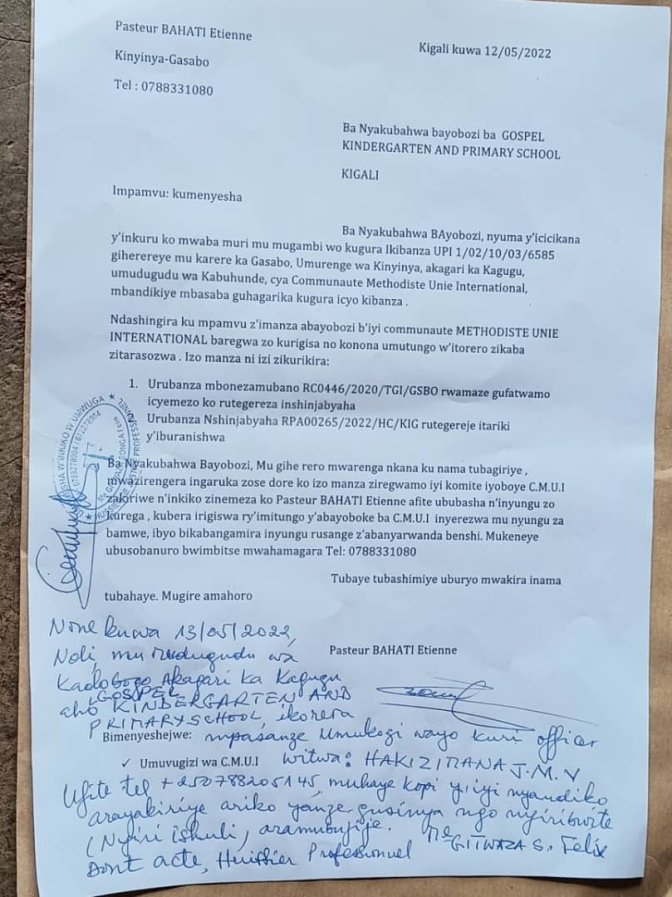 Pasteur BAHATI Etienne
Kigali kuwa 12/05/2022
Kinyinya-Gasabo
Tel : 0788331080
Ba Nyakubahwa bayobozi ba GOSPEL
KINDERGARTEN AND PRIMARY SCHOOL
KIGALI
Impamvu: kumenyesha
Ba Nyakubahwa BAyobozi, nyuma y'icicikana
y'inkuru ko mwaba muri mu mugambi wo kugura Ikibanza UPI 1/02/10/03/6585
giherereye mu karere ka Gasabo, Umurenge wa Kinyinya, akagari ka Kagugu,
umudugudu wa Kabuhunde, cya Communaute Methodiste Unie International,
mbandikiye mbasaba guhagarika kugura icyo kibanza .
Ndashingira ku mpamvu z'imanza abayobozi b'iyi communaute METHODISTE UNIE
INTERNATIONAL baregwa zo kurigisa no konona umutungo w'itorero zikaba
zitarasozwa . Izo manza ni izi zikurikira:
1. Urubanza mbonezamubano RC0446/2020/TGI/GSBO rwamaze gufatwamo
icyemezo ko rutegereza inshinjabyaha
Urubanza Nshinjabyaha RPA00265/2022/HC/KIG rutegereje itariki
y'iburanishwa
Ba Nyakubahwa Bayobozi, Mu gihe rero mwarenga nkana ku nama tubagiriye ,
mwazirengera ingaruka zose dore ko izo manza ziregwamo iyi komite iyoboye C.M.U.I
zakiriwe n'inkiko zinemeza ko Pasteur BAHATI Etienne afite ububasha n'inyungu zo
kurega , kubera irigiswa ry'imitungo y'abayoboke ba C.M.U.I inyerezwa mu nyungu za
bamwe, ibyo bikabangamira inyungu rusange z'abanyarwanda benshi. Mukeneye
ubusobanuro bwimbitse mwahamagara Tel: 0788331080
Tubaye tubashimiye uburyo mwakira inama
tubahaye. Mugire amahoro
None kuwa 13/05/2022,
Pasteur BAHATI Etienne
Ndi mu mudugudu wa
Kadobogo Akagari ka Kagugu
aho GOSPEL
KINDERGARTEN AND
PRIMARY SCHOOL, ikorera
Bimenyeshejwe: mpasanze Umukozi wayo kuri officer
✓ Umuvugizi wa C.M.U.I witwa: HAKIZIMANA J.M.V
Ufite tel +250788205145, muhaye kopi y'iyi nyandiko
arayakiriye ariko yanze gusinya ngo nyiribwite
(Nyiri ishuli) aramubujije. Me GITWAZA S. Felix
Dont acte, Huissier Professionnel